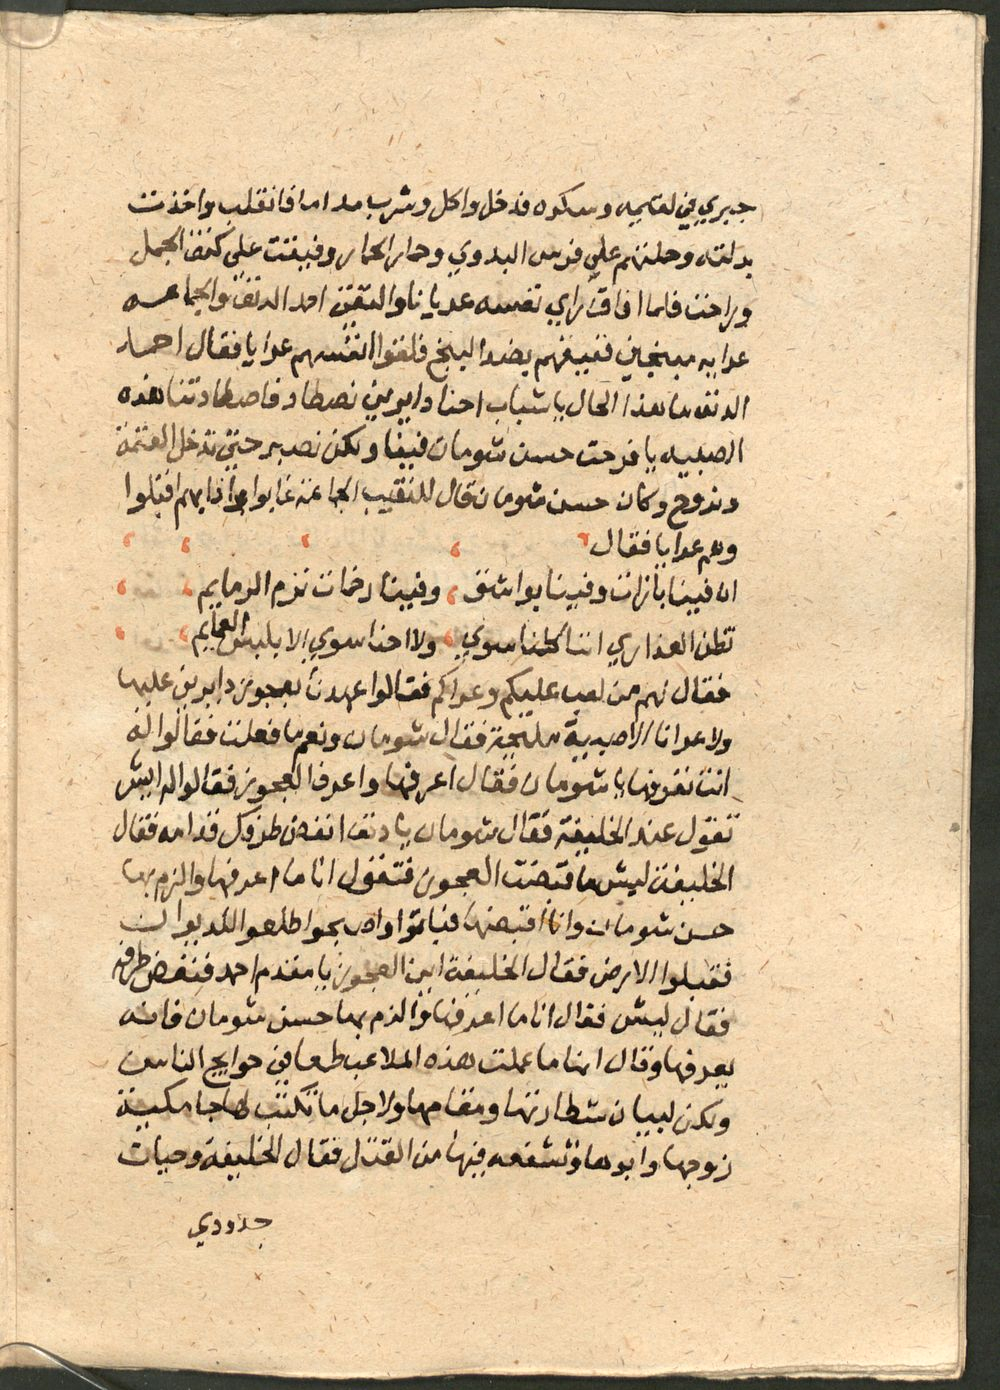 جيري في لقميه وسكوه فدخل واكل وشرب مداما فانقلب واخذت
بدلته وحملتهم علي فرس البدوي وحمار الحمار وفيقت علي كتف الجمل
وراحت فلما افاق راي نفسه عريانا والتقي احمد الدنف والجماعه
عرايه مبنجين ففيقهم بضد البنج فلقوا انفسهم عرايا فقال احمد
الدنف ما هذا الحال يا شباب احنا دايرين نصطاد فاصطادتنا هذه
الصبيه يا فرحت حسن شومان فينا ولكن نصبر حتي تدخل العتمة
ونروح وكان حسن شومان قال للنقيب الجماعة غابوا واذا بهم اقبلوا
وهم عرايا فقال
ان فينا بازات وفينا بواشق وفينا رخمات ترم الرمايم
تظن العذاري اننا كلنا سوي ولا احنا سوي الا بلبس العمايم
فقال لهم من لعب عليكم وعراكم فقالوا عهدنا بعجوز دايرين عليها
ولا عرانا الا صبية مليحة فقال شومان ونعم ما فعلت فقالوا له
انت تعرفها يا شومان فقال اعرفها واعرف العجوز فقالوا له ايش
تقول عند الخليفة فقال شومان يا دنف انفض طوقك قدامه فقال
الخليفة ليش ما قبضت العجوز فتقول انا ما اعرفها والزم بها
حسن شومان وانا اقبضها فباتوا واصبحوا طلعوا الديوان
فقبلوا الارض فقال الخليفة اين العجوز يا مقدم احمد فنفض طوقه
فقال ليش فقال انا ما اعرفها والزم بها حسن شومان فانه
يعرفها وقال انها ما عملت هذه الملاعب طمعا في حوايج الناس
ولكن لبيان شطارتها ومقامها ولاجل ما تكتب لها جامكية
زوجها وابوها وتشفعه فيها من القتل فقال الخليفة وحيات
جدودي